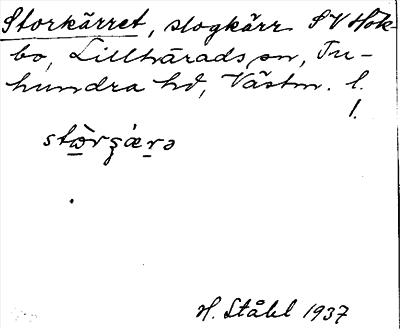 Storkärret, slogkärr SV Hök-
bo, Lillhärads sn, Tu-
hundra hd, Västm. l.
1.
stὼrʂæ̀rə
H. Ståhl 1937